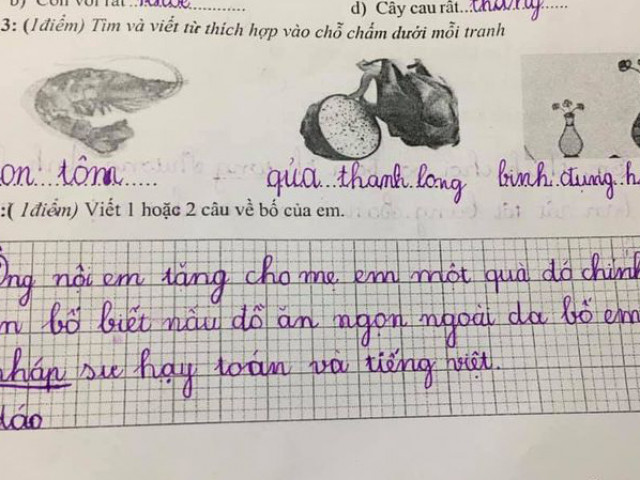 d) Cây cau rất...thẳng......
3: (1điểm) Tìm và viết từ thích hợp vào chỗ chấm dưới mỗi tranh
on...tôm...... qủa...thanh.long bình.đựng.h
:( 1điểm) Viết 1 hoặc 2 câu về bố của em.
Ông nội em tăng cho mẹ em một quà đó chính
n bố biết nấu đồ ăn ngọn ngoài da bố em
pháp sư hạy toán và tiếng việt.
dáo